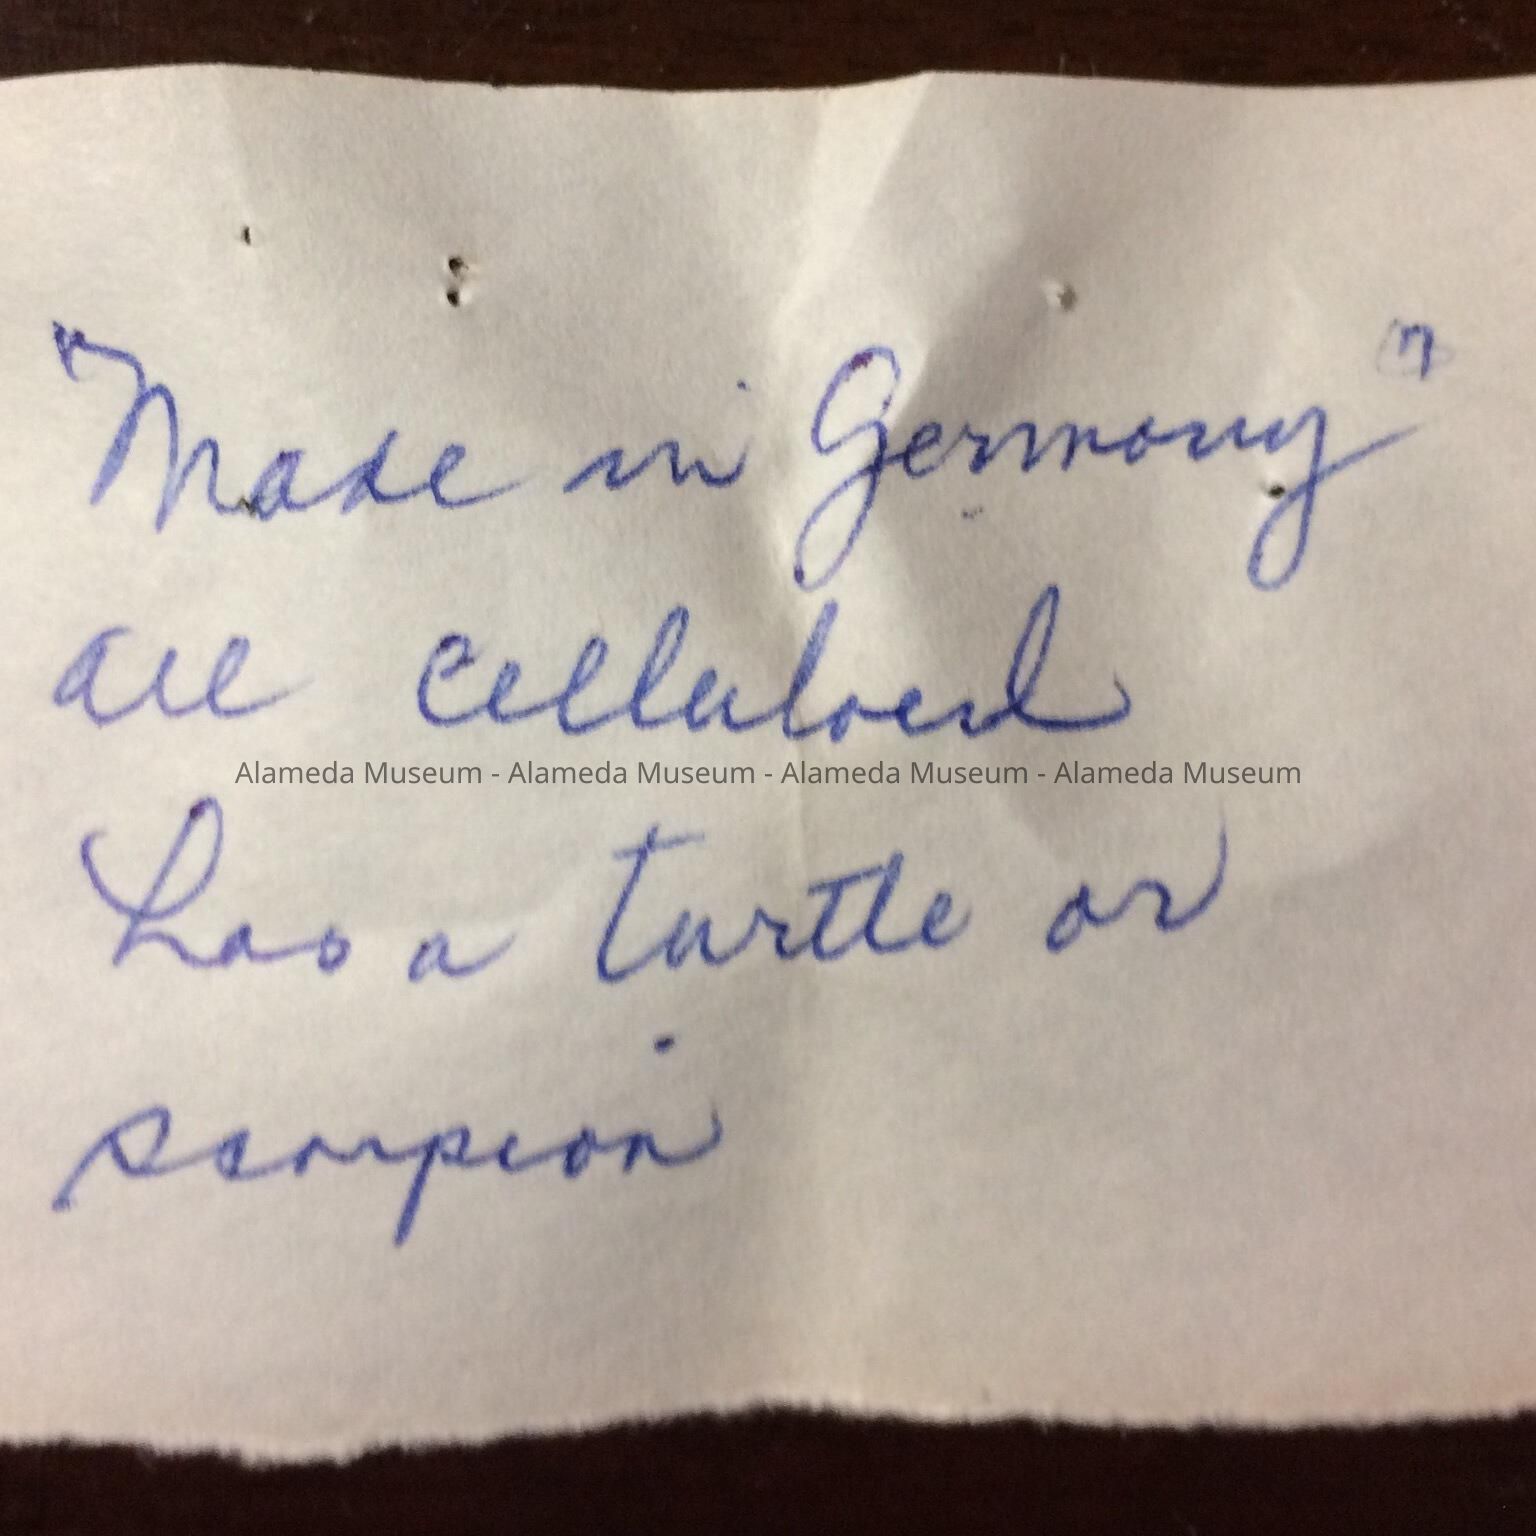 "Made in Germany"
are celluloid
Alameda Museum - Alameda Museum - Alameda Museum - Alameda Museum
has a turtle or
scorpion